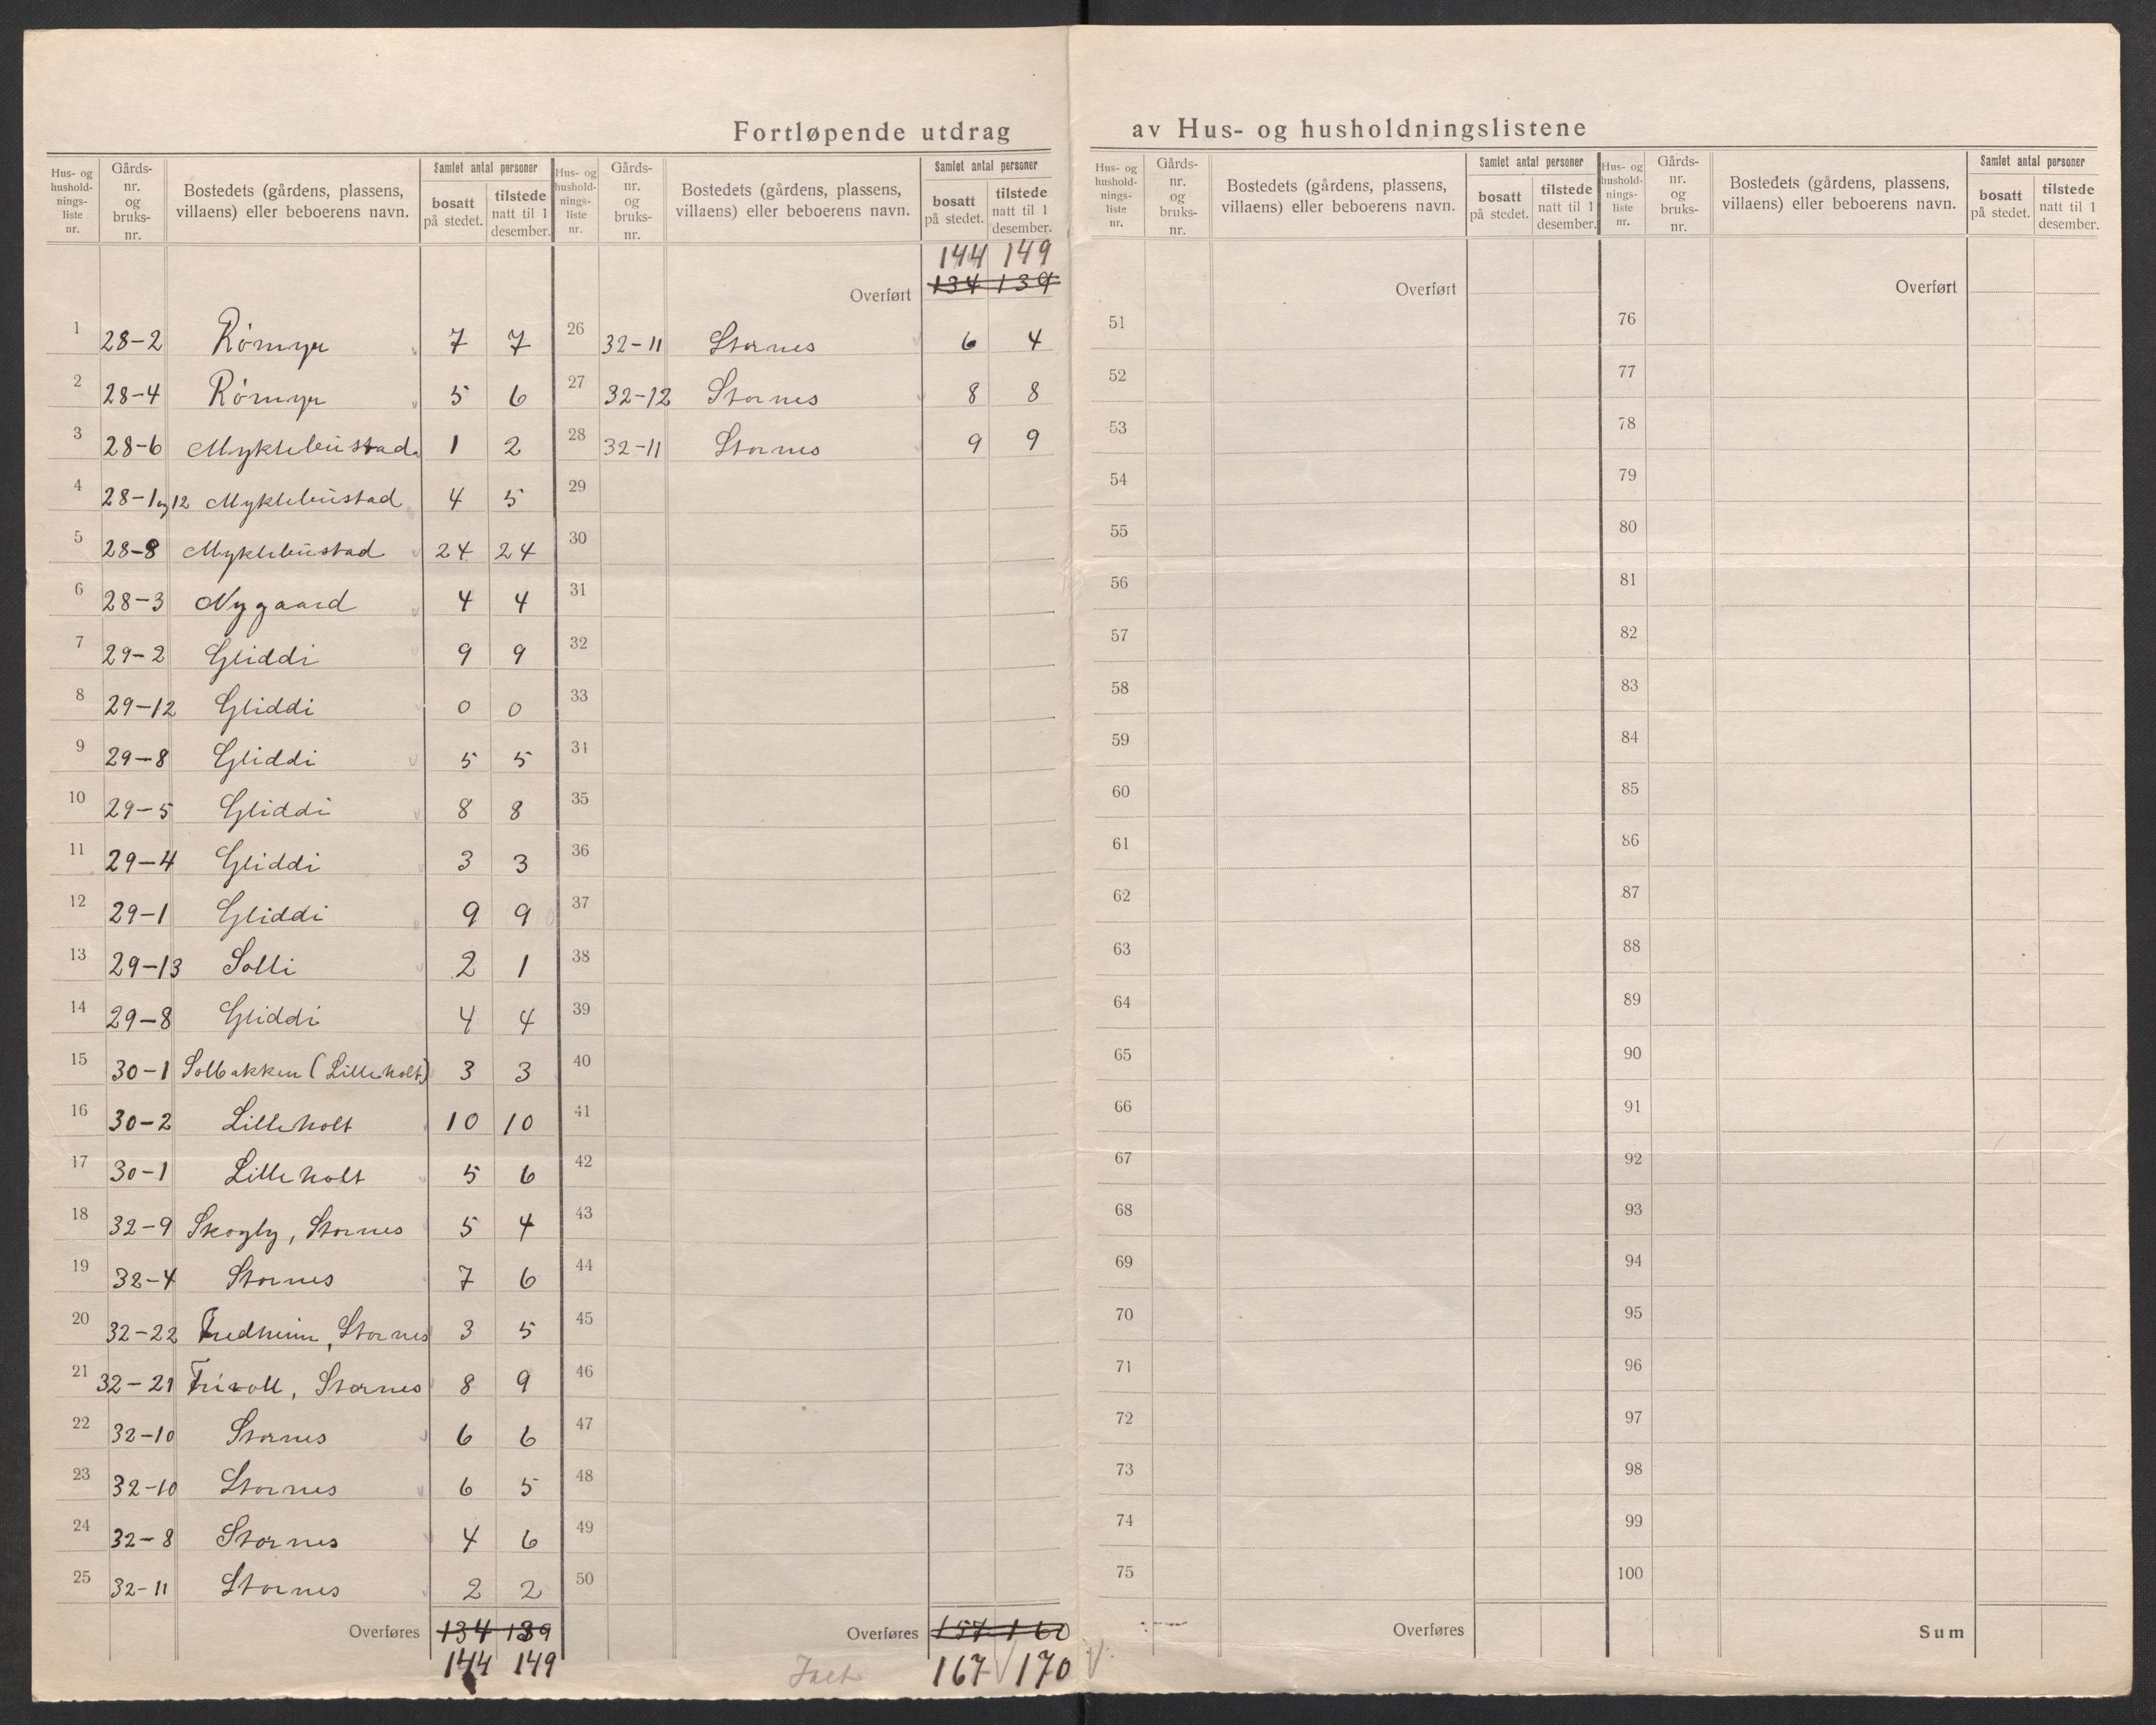 Fortløpende utdrag av Hus- og husholdningslistene
Hus- og hushold- nings- liste nr. Gårds- nr. og bruks- nr. Bostedets (gårdens, plassens, villaens) eller beboerens navn. Samlet antal personer bosatt på stedet. tilstede natt til 1 desember.
1 28-2 Rømyr 7 7
2 28-4 Rømyr 5 6
3 28-6 Myklebustad 1 2
4 28-1 og 12 Myklebustad 4 5
5 28-8 Myklebustad 24 24
6 28-3 Nygaard 4 4
7 29-2 Gliddi 9 9
8 29-12 Gliddi 0 0
9 29-8 Gliddi 5 5
10 29-5 Gliddi 8 8
11 29-4 Gliddi 3 3
12 29-1 Gliddi 9 9
13 29-13 Solli 2 1
14 29-8 Gliddi 4 4
15 30-1 Solbakken (Lilleholt) 3 3
16 30-2 Lilleholt 10 10
17 30-1 Lilleholt 5 6
18 32-9 Skogly, Stornes 5 4
19 32-4 Stornes 7 6
20 32-22 Fredheim, Stornes 3 5
21 32-21 Trivoll, Stornes 8 9
22 32-10 Stornes 6 6
23 32-10 Stornes 6 5
24 32-8 Stornes 4 6
25 32-11 Stornes 2 2
Overføres 134 139
144 149
Hus- og hushold- nings- liste nr. Gårds- nr. og bruks- nr. Bostedets (gårdens, plassens, villaens) eller beboerens navn. Samlet antal personer bosatt på stedet. tilstede natt til 1 desember.
144 149
Overført 134 139
26 32-11 Stornes 6 4
27 32-12 Stornes 8 8
28 32-11 Stornes 9 9
29
30
31
32
33
34
35
36
37
38
39
40
41
42
43
44
45
46
47
48
49
50
Overføres 157 160
167 170
Hus- og hushold- nings- liste nr. Gårds- nr. og bruks- nr. Bostedets (gårdens, plassens, villaens) eller beboerens navn. Samlet antal personer bosatt på stedet. tilstede natt til 1 desember.
Overført
51
52
53
54
55
56
57
58
59
60
61
62
63
64
65
66
67
68
69
70
71
72
73
74
75
Overføres
Hus- og hushold- nings- liste nr. Gårds- nr. og bruks- nr. Bostedets (gårdens, plassens, villaens) eller beboerens navn. Samlet antal personer bosatt på stedet. tilstede natt til 1 desember.
Overført
76
77
78
79
80
81
82
83
84
85
86
87
88
89
90
91
92
93
94
95
96
97
98
99
100
Sum